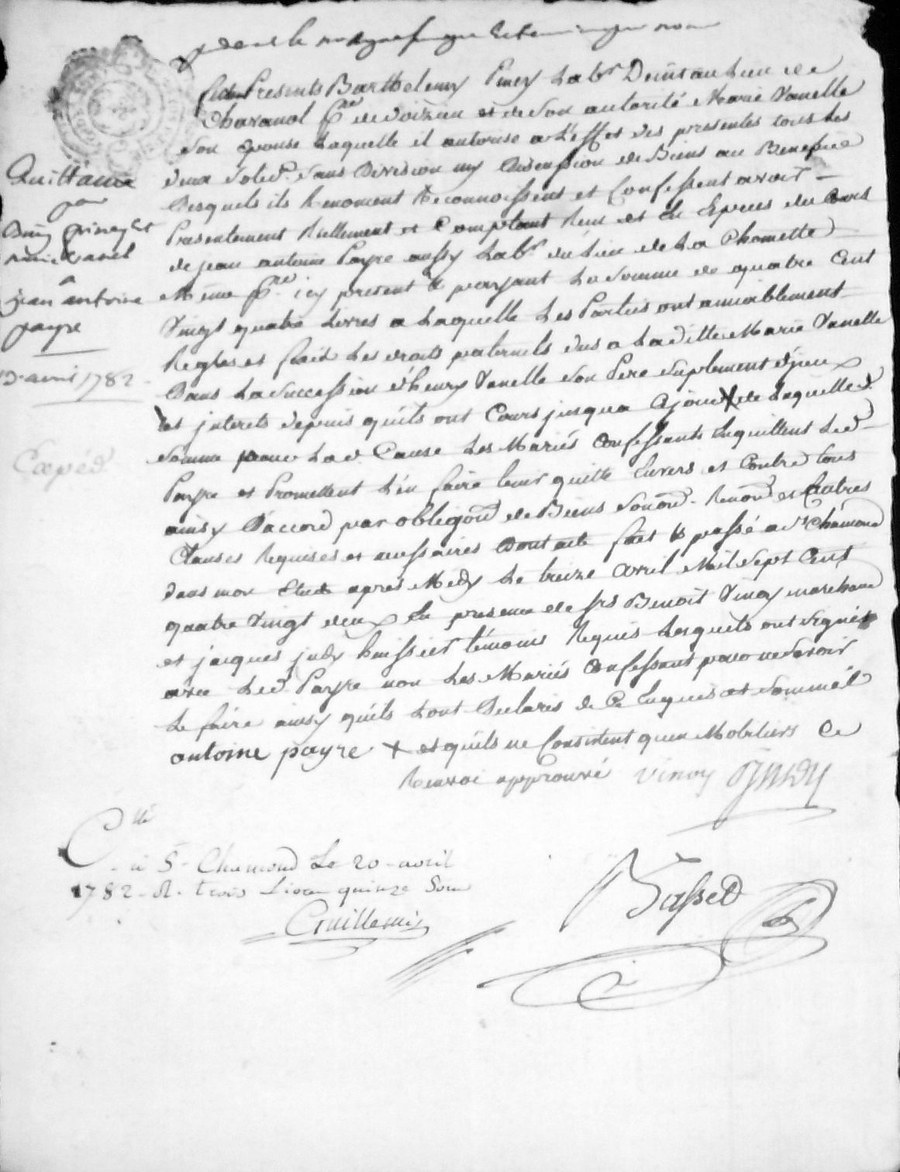 Quittance
par
et
marie vanel
a
jean antoine
payre
13 avril 1782
Expéd
furent Presents Barthelemy Piney hab.t Demt au Lieu de
Chavanol P.sse de Voizieu et de Son autorité Marie Vanelle
Son Epouse Laquelle il autorise a L'effet des presentes tous les
deux Solid.t Sans Division ny Discussion de Biens au Benefice
Desquels ils Renoncent Reconnoissent et Confessent avoir
Presentement Reellement et Comptant Reçu et En Especes du Cours
de jean antoine Payre aussy hab.t du Lieu de La Chomette
Meme P.sse icy present & payant La Somme de quatre Cent
Vingt quatre Livres a Laquelle Les Parties ont amiablement
Regles et fixé Les droits paternels dus a Laditte Marie Vanelle
Dans La Succession d'henry Vanelle Son Pere Suplement d'yceux
et interets depuis qu'ils ont Cours jusqua Ce jour X de Laquelle d.
Somme pour Lad. Cause Les Mariés Confessants Enquittent Led.
Payre et Promettent L'en faire tenir quitte Envers et Contre tous
ainsy D'accord par obligaôn de Biens Renonc. et autres
Clauses Requises et necessaires Dont acte fait & passé a St Chamond
dans mon Etude apres Midy Le treize avril Mil Sept Cent
quatre Vingt deux En presence de Srs Benoit Vinoy marchand
et jacques judy huissier témoins Requis Lesquels ont Signé
avec Led. Payre non Les Mariés Confessants pour ne Savoir
Le faire ainsy qu'ils L'ont Declarés de Ce Enquis et Sommés
antoine payre X et qu'ils ne Consistent qu'en Mobiliers Ce
Renvoi approuvé Vinoy Judy
C.llé
a St Chamond Le 20 avril
1782 R. trois Livres quinze Sous
Guillemin
Basset